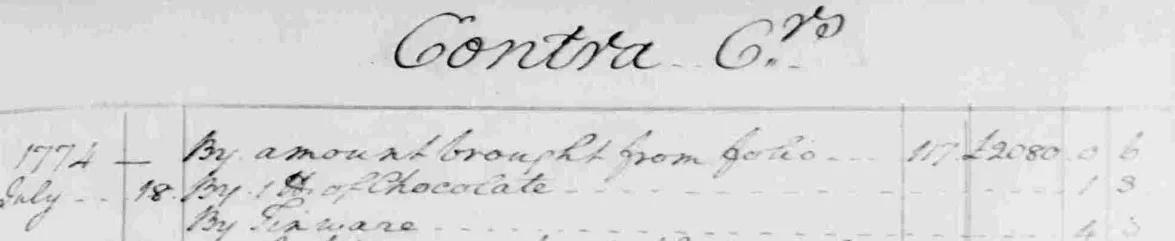 Contra C.rs
1774 — By amount brought from folio - - - 117 £2080 0 6
July - - 18 By 1 lb of Chocolate - - - - - - - - - 1 3
By Tinware - - - - - - - - - 4